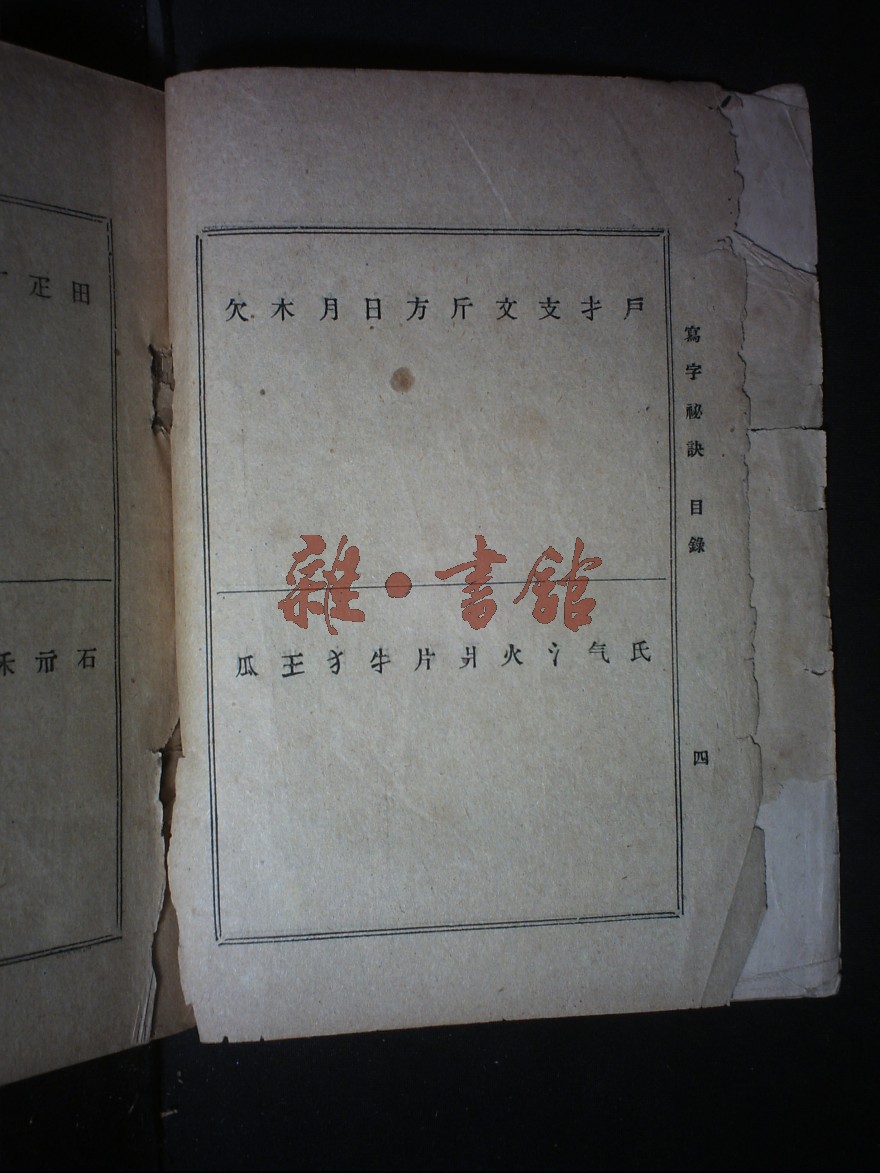 寫字祕訣 目錄
四
戶扌支文斤方日月木欠
氏气氵火爿片牜犭王瓜
田疋
石示禾
雜·書館